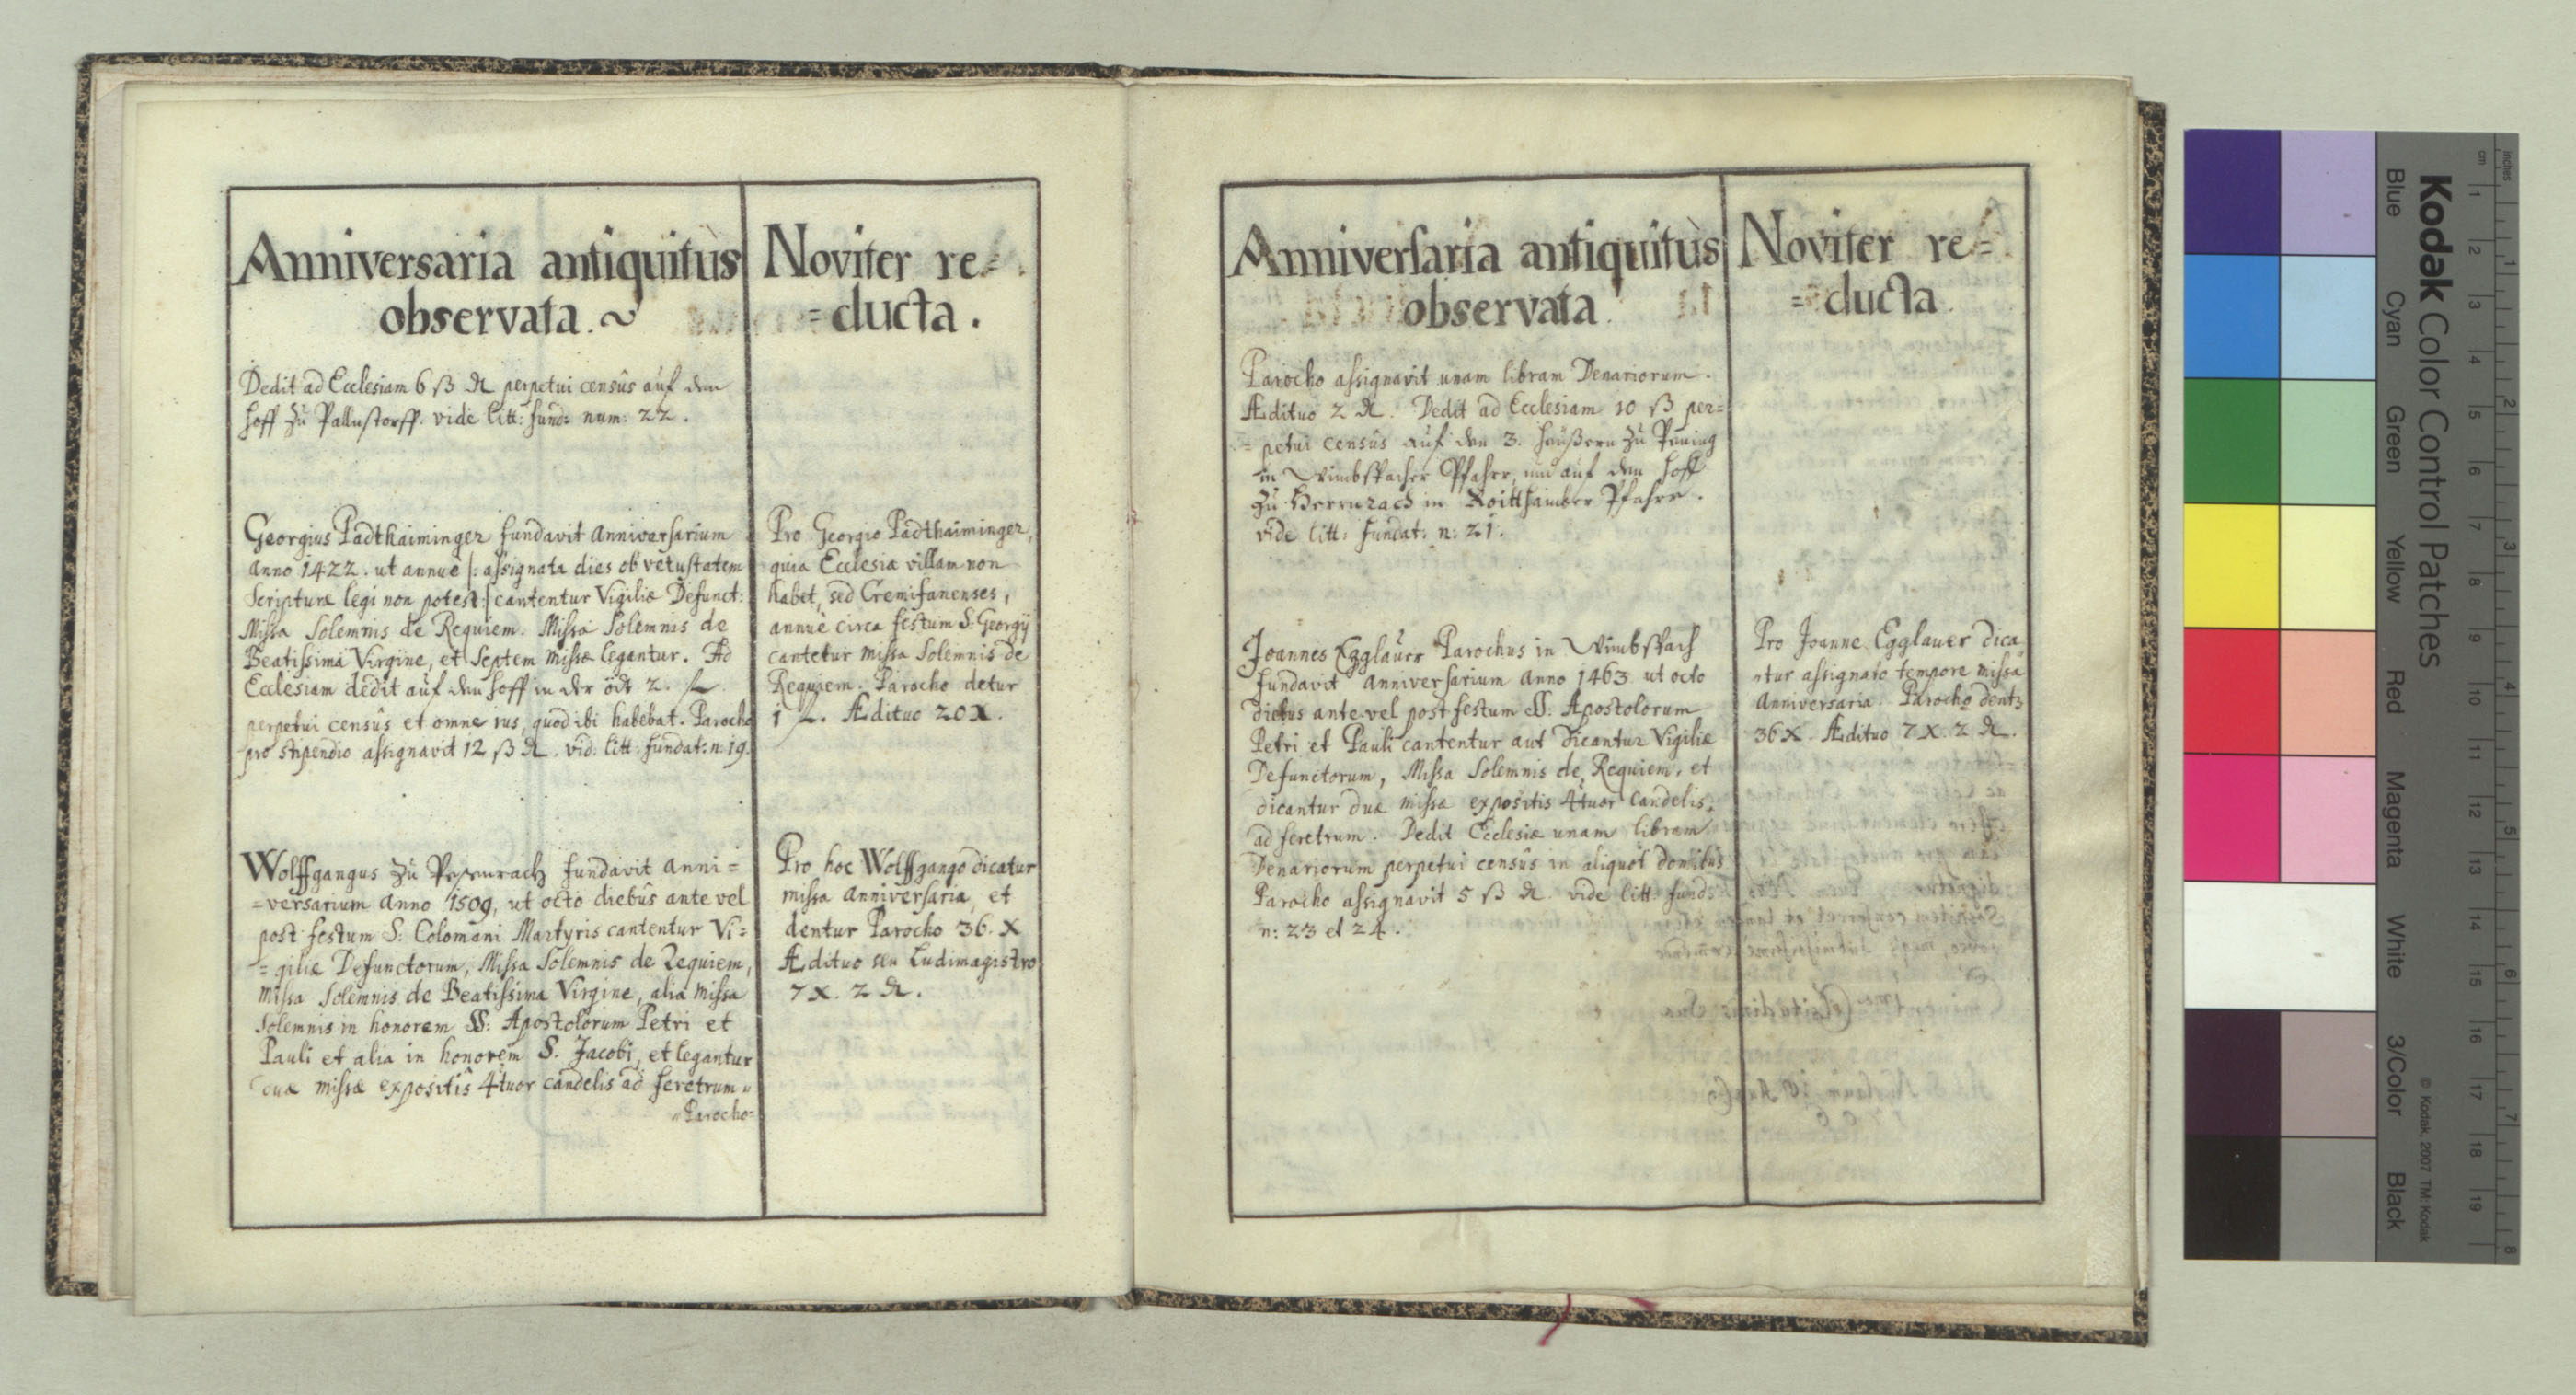 Anniversaria antiquitùs
observata. ~
Dedit ad Ecclesiam 6 ß ₰ perpetui censûs auf dem
hoff zu Pallnstorff. vide litt: fund: num: 22.
Georgius Pädthaiminger fundavit Anniversarium
Anno 1422. ut annuè /: assignata dies ob vetustatem
Scripturæ legi non potest :/ cantentur Vigiliæ Defunct:
Missa Solemnis de Requiem. Missa Solemnis de
Beatissima Virgine, et Septem missæ legantur. Ad
Ecclesiam dedit auf dem hoff in der ödt 2. fl.
perpetui censûs et omne ius, quod ibi habebat. Parocho
pro stipendio assignavit 12 ß ₰. vid: litt: fundat: n: 19.
Wolffgangus zu fundavit Anni=
=versarium Anno 1509, ut octo diebûs ante vel
post festum S: Colomani Martyris cantentur Vi=
=giliæ Defunctorum, Missa Solemnis de Requiem,
missa Solemnis de Beatissima Virgine, alia missa
Solemnis in honorem SS: Apostolorum Petri et
Pauli et alia in honorem S. Jacobi, et legantur
duæ missæ expositîs 4tuor candelis ad feretrum„
„Parocho=
Noviter re=
=ducta.
Pro Georgio Pädthaiminger,
quia Ecclesia villam non
habet, sed Cremifanenses,
annuè circa festum S: Georgÿ
cantetur missa Solemnis de
Requiem. Parocho detur
1 fl. Ædituo 20 X.
Pro hoc Wolffgango dicatur
missa Anniversaria, et
dentur Parocho 36. X
Ædituo seu Ludimagistro
7 X. 2 ₰.
Anniversaria antiquitùs
observata.
Parocho assignavit unam libram Denariorum.
Ædituo 2 ₰. Dedit ad Ecclesiam 10 ß per=
=petui censûs auf den 3. heußern zu Paning
in Wimbspacher Pfahrr, und auf dem hoff
zu Herrnzach in Roitthaimber Pfahrr.
vide litt: fundat: n: 21.
Joannes Egglauer Parochus in Wimbspach
fundavit Anniversarium Anno 1463. ut octo
diebus ante vel post festum SS: Apostolorum
Petri et Pauli cantentur aut dicantur Vigiliæ
Defunctorum, Missa Solemnis de Requiem, et
dicantur duæ missæ expositis 4tuor candelis,
ad feretrum. Dedit Ecclesiæ unam libram
Denariorum perpetui censûs in aliquot domibus
Parocho assignavit 5 ß ₰. vide litt: fund:
n: 23 et 24.
Noviter re=
=ducta.
Pro Joanne Egglauer dica
„tur assignato tempore missa
Anniversaria. Parocho dent:
36 X. Ædituo 7 X. 2 ₰.
Kodak Color Control Patches
Blue Cyan Green Yellow Red Magenta White 3/Color Black
© Kodak, 2007 TM: Kodak
cm 1 2 3 4 5 6 7 8 9 10 11 12 13 14 15 16 17 18 19
inches 1 2 3 4 5 6 7 8